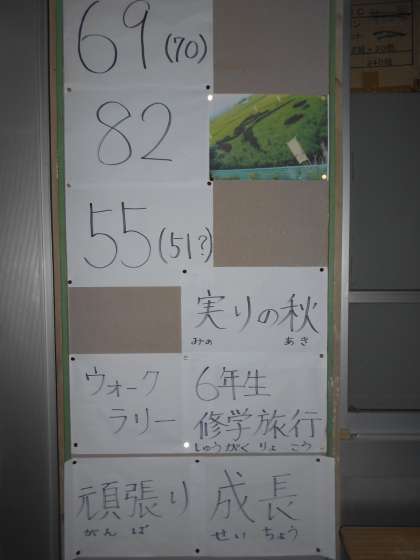 69(70)
82
55(51?)
実りの秋
みの あき
ウォーク
ラリー
6年生
修学旅行
しゅうがくりょこう
頑張り
がんば
成長
せいちょう